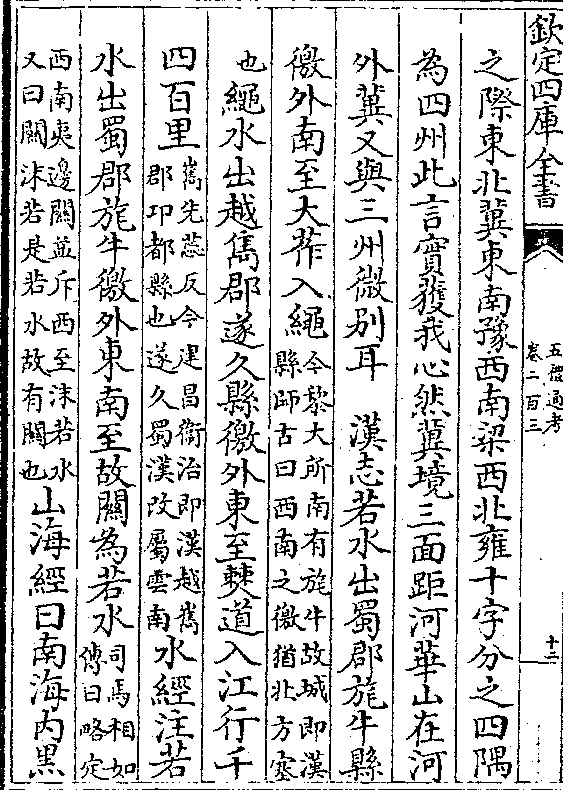 欽定四庫全書
五禮通考
卷二百三
十二
之際東北冀東南豫西南梁西北雍十字分之四隅
為四州此言實獲我心然冀境三面距河華山在河
外冀又與三州微別耳　漢志若水出蜀郡旄牛縣
徼外南至大莋入繩
今黎大所南有旄牛故城即漢
縣師古曰西南之徼猶北方塞
也繩水出越嶲郡遂久縣徼外東至僰道入江行千
四百里
嶲先蕊反今建昌衛治即漢越嶲
郡邛都縣也遂久蜀漢改屬雲南
水經注若
水出蜀郡旄牛徼外東南至故關為若水
司馬相如
傳曰略定
西南夷邊關益斥西至沬若水
又曰關沬若是若水故有關也
山海經曰南海内黑